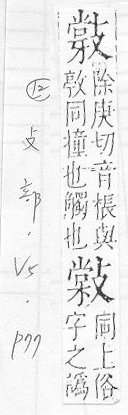 除庚切音棖與
同撞也觸也
同上俗
字之譌
⑫ 攴部. V5. p77